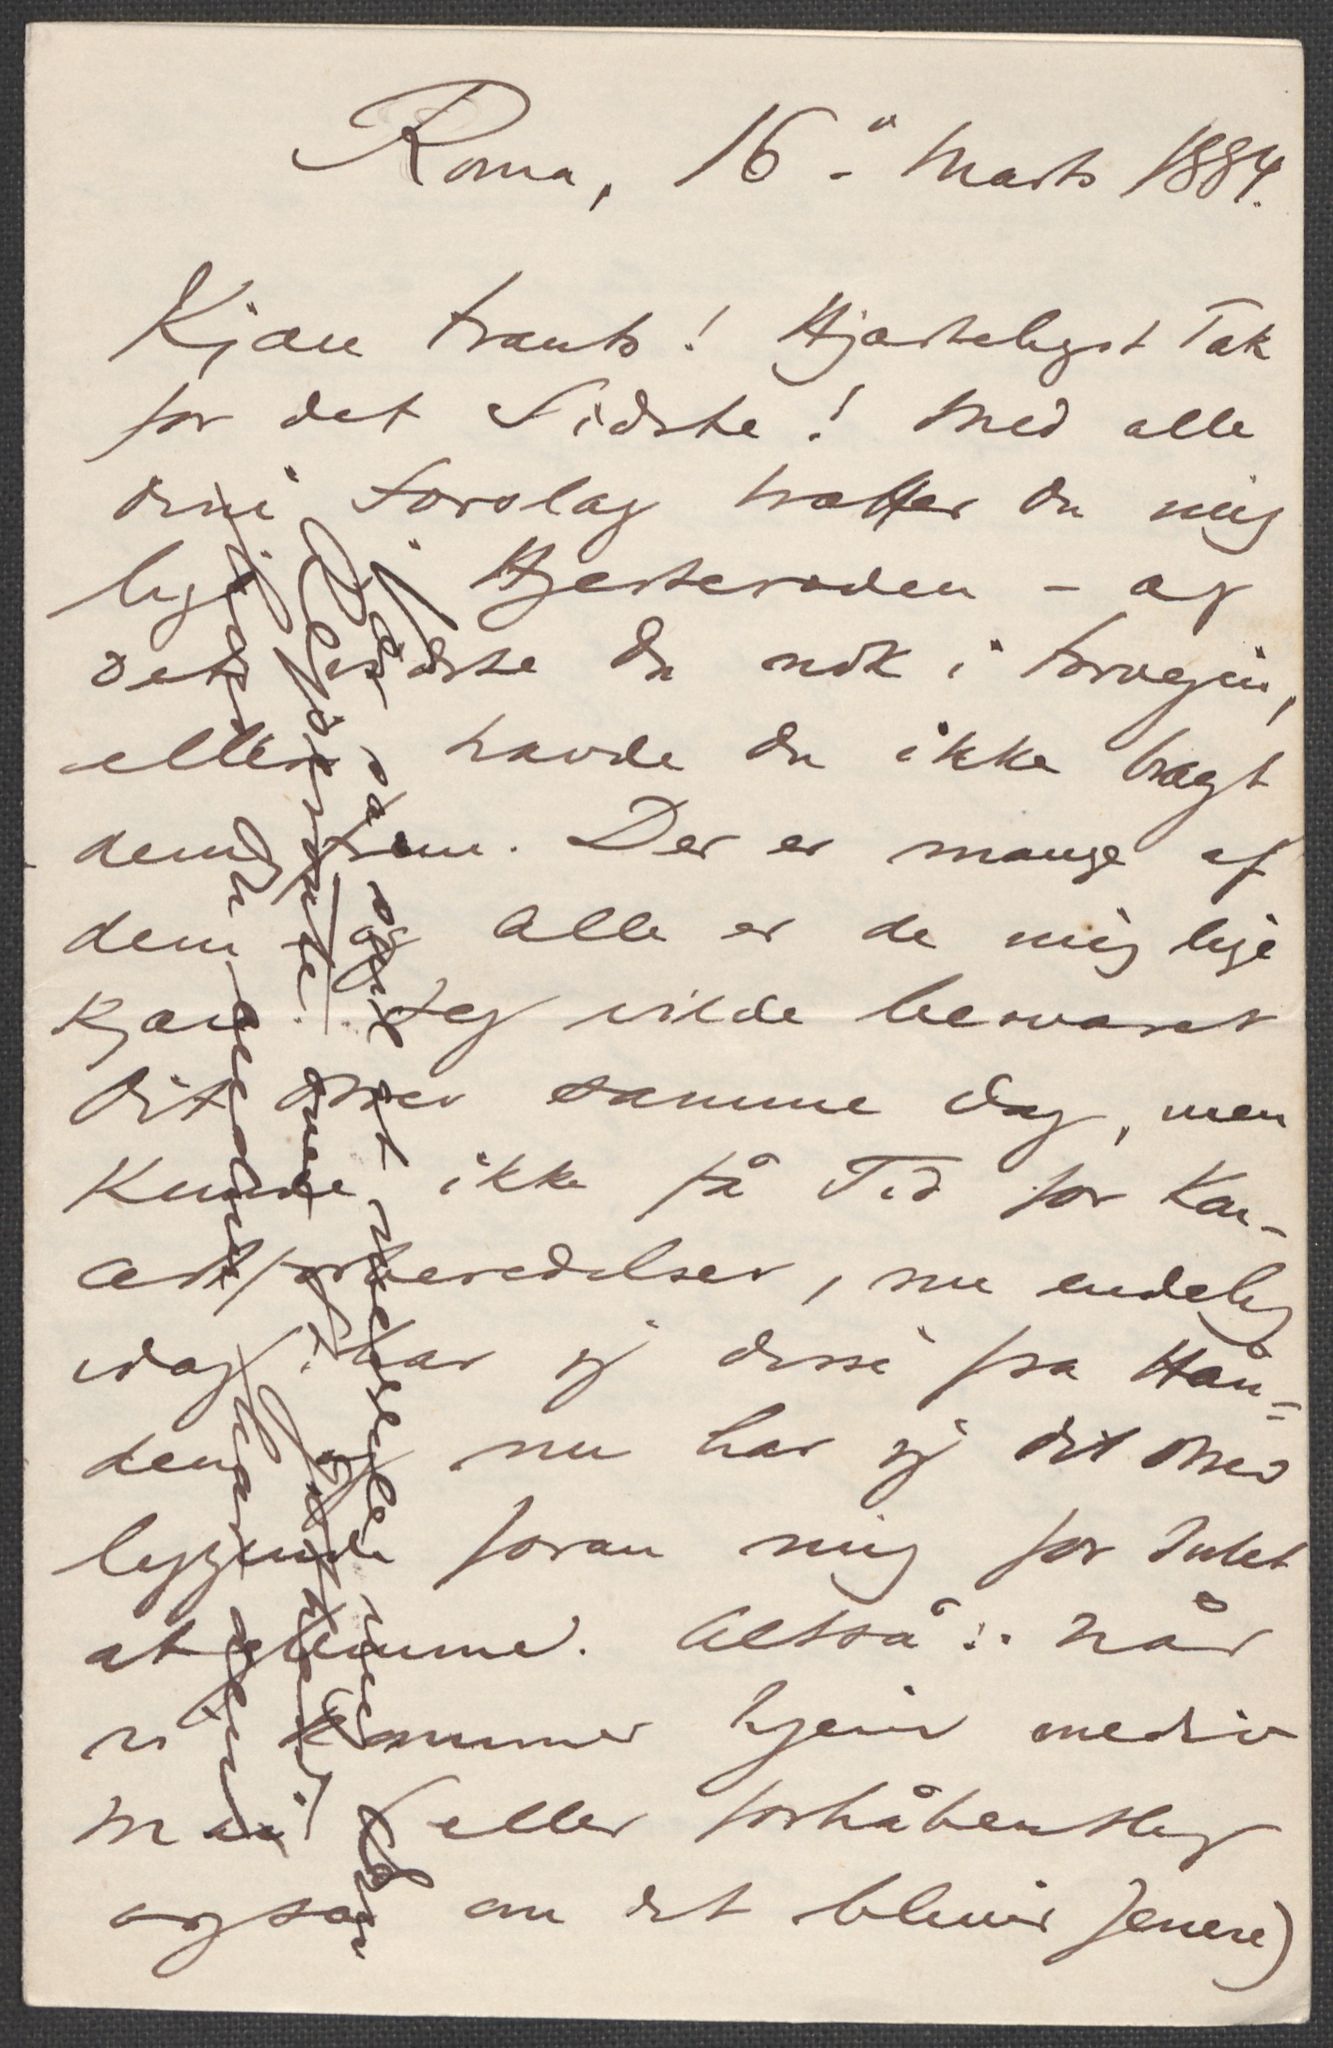 Roma, 16de Marts 1884.
Kjære Frants! Hjærteligst Tak
for det Sidste! Med alle
dine Forslag træffer du mig
lige i Hjerteroden – og
det vidste du nok i Forvejen,
ellers havde du ikke bragt
dem frem. Der er mange af
dem og alle er de mig lige
kjære. Jeg vilde besvaret
dit Brev samme Dag, men
kunde ikke få Tid for Kon-
certforberedelser, nu endelig
idag har jeg disse fra Hån-
den og nu har jeg dit Brev
liggende foran mig for Intet
at glemme. Altså: Når
vi kommer hjem medio
Mai (eller forhåbentlig
også om det bliver senere)